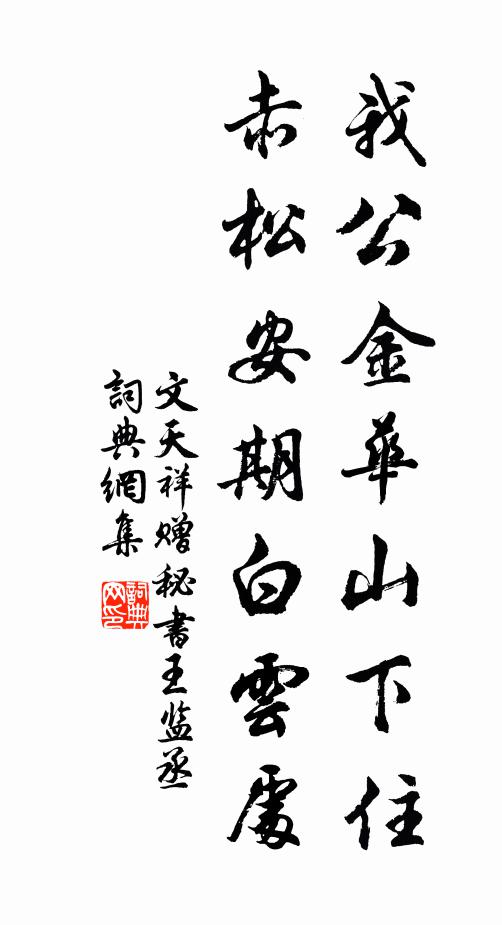 我公金華山下住
赤松安期白雲處
文天祥贈秘書王监丞
詞典網集
詞典网印